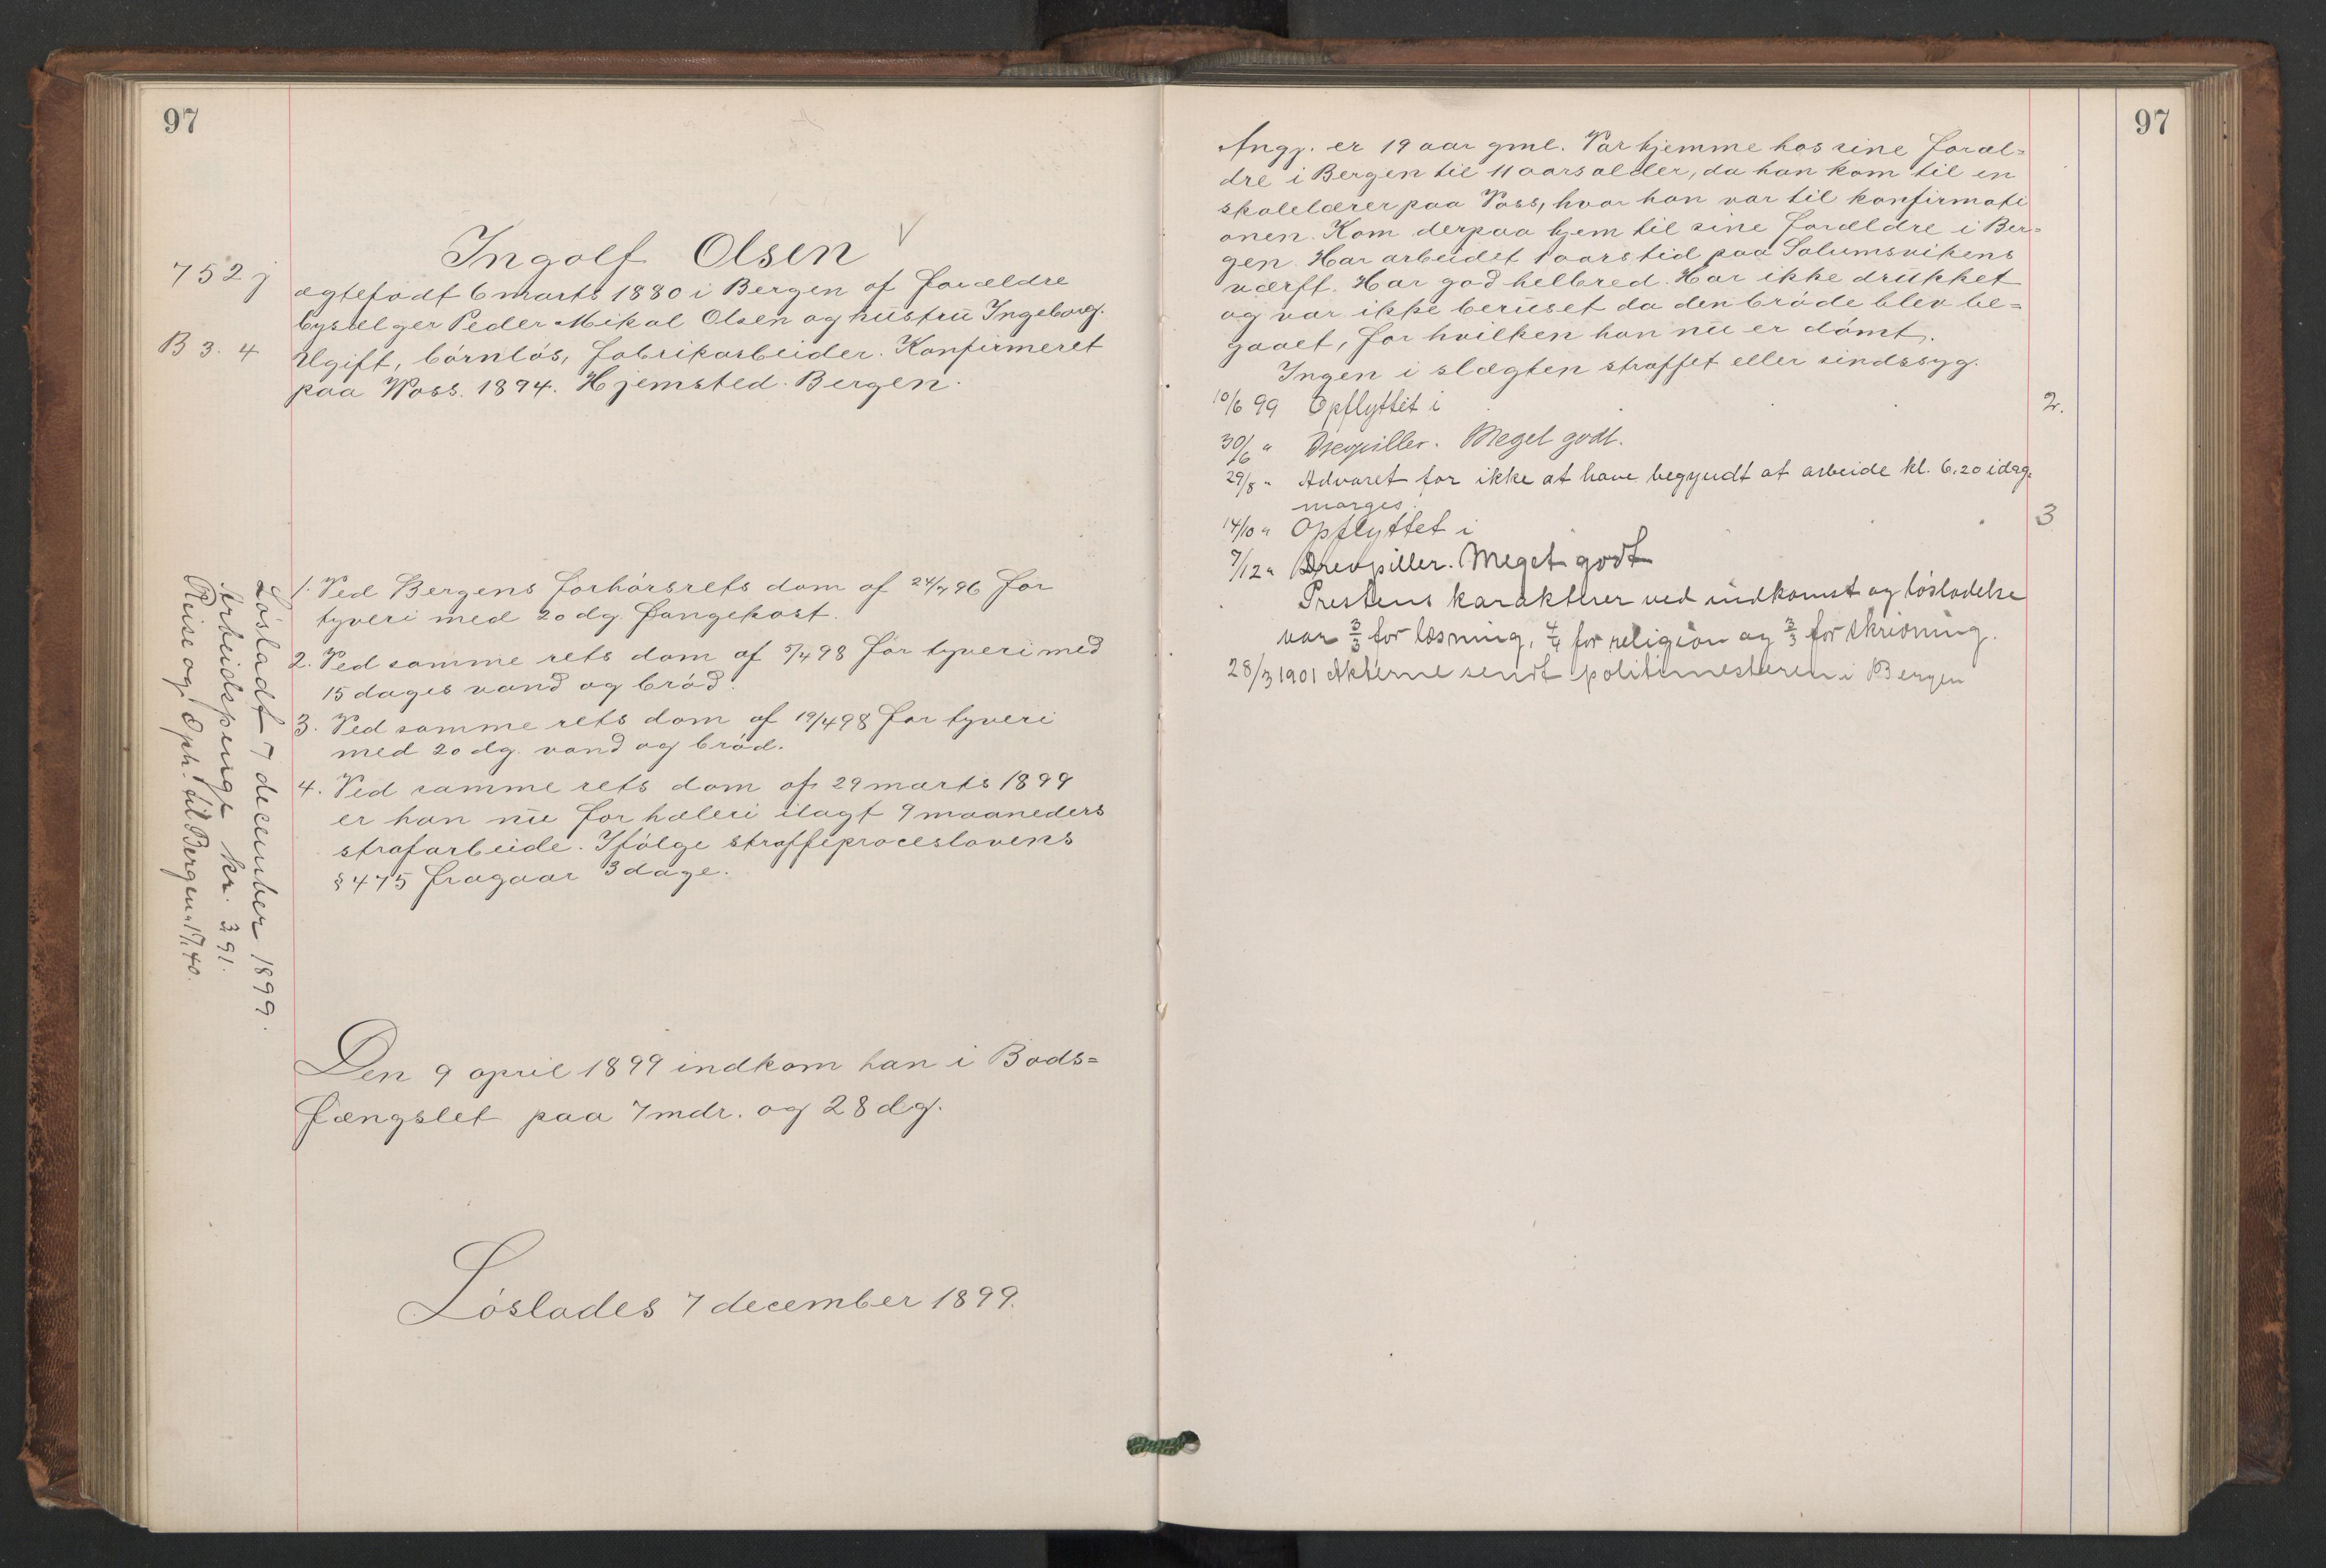 97
Ingolf Olsen
752 j
ægtefødt 6 marts 1880 i Bergen af forældre
bysælger Peder Mikal Olsen og hustru Ingeborg.
B 3. 4
Ugift, børnløs, fabrikarbeider. Konfirmeret
paa Woss. 1894. Hjemsted Bergen.
1. Ved Bergens forhørsrets dom af 24/7 96 for
tyveri med 20 dg fangekost.
2. Ved samme rets dom af 5/4 98 for tyveri med
15 dages vand og brød.
3. Ved samme rets dom af 19/4 98 for tyveri
med 20 dg. vand og brød.
4. Ved samme rets dom af 29 marts 1899
er han nu for hæleri ilagt 9 maaneders
strafarbeide. Ifølge straffeproceslovens
§ 475 fragaar 3 dage.
Løsladt 7 december 1899.
Arbeidspenge kr. 3,91.
Reise og Oph. til Bergen. 17,40.
Den 9 april 1899 indkom han i Bods=
fængslet paa 7 mdr. og 28 dg.
Løslades 7 december 1899.
97
Angj. er 19 aar gml. Var hjemme hos sine foræl=
dre i Bergen til 11 aars alder, da han kom til en
skolelærer paa Voss, hvor han var til konfirmati
onen. Kom derpaa hjem til sine forældre i Ber=
gen. Har arbeidet 1 aars tid paa Solumsvikens
værft. Har god helbred. Har ikke drukket
og var ikke beruset da den brøde blev be=
gaaet, for hvilken han nu er dømt.
Ingen i slægten straffet eller sindssyg.
10/6 99 Opflyttet i 2.
30/6 " Drevpiller. Meget godt.
29/8 " Advaret for ikke at have begyndt at arbeide kl. 6,20 idag
morges.
14/10 " Opflyttet i 3
7/12 " Drevpiller. Meget godt
Prestens karakterer ved indkomst og løsladelse
var 3/3 for læsning, 4/4 for religion og 3/3 for skrivning.
28/3 1901 Akterne sendt politimesteren i Bergen